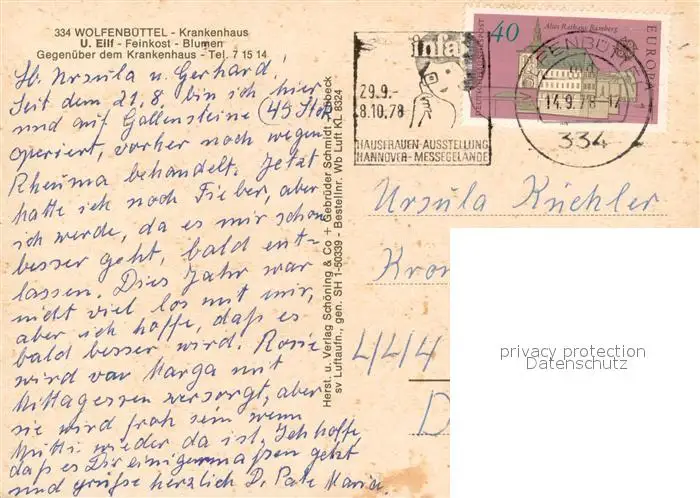 334 WOLFENBÜTTEL - Krankenhaus
U. Eilf - Feinkost - Blumen
Gegenüber dem Krankenhaus - Tel. 7 15 14
Lb. Ursula u. Gerhard!
Seit dem 21.8. bin ich hier
und auf Gallensteine (45 Stck)
operiert, vorher noch wegen
Rheuma behandelt. Jetzt
hatte ich noch Fieber, aber
ich werde, da es mir schon
besser geht, bald ent-
lassen. Dies Jahr war
nicht viel los mit mir,
aber ich hoffe, daß es
bald besser wird. Rosie
wird von Marga mit
Mittagessen versorgt, aber
sie wird froh sein wenn
Mutti wieder da ist. Ich hoffe
daß es Dir einigermaßen geht
und grüße herzlich D. Pate Maria.
Herst. u. Verlag Schöning & Co + Gebrüder Schmidt, Lübeck
sv Luftaufn., gen. SH 1-50339 - Bestellnr. Wb Luft KL 8324
29.9.-
8.10.78
HAUSFRAUEN-AUSSTELLUNG
HANNOVER-MESSEGELÄNDE
40
Altes Rathaus Bamberg
EUROPA
DEUTSCHE BUNDESPOST
WOLFENBÜTTEL 1
14.9.78-17
334
Ursula Küchler
444
D
privacy protection
Datenschutz